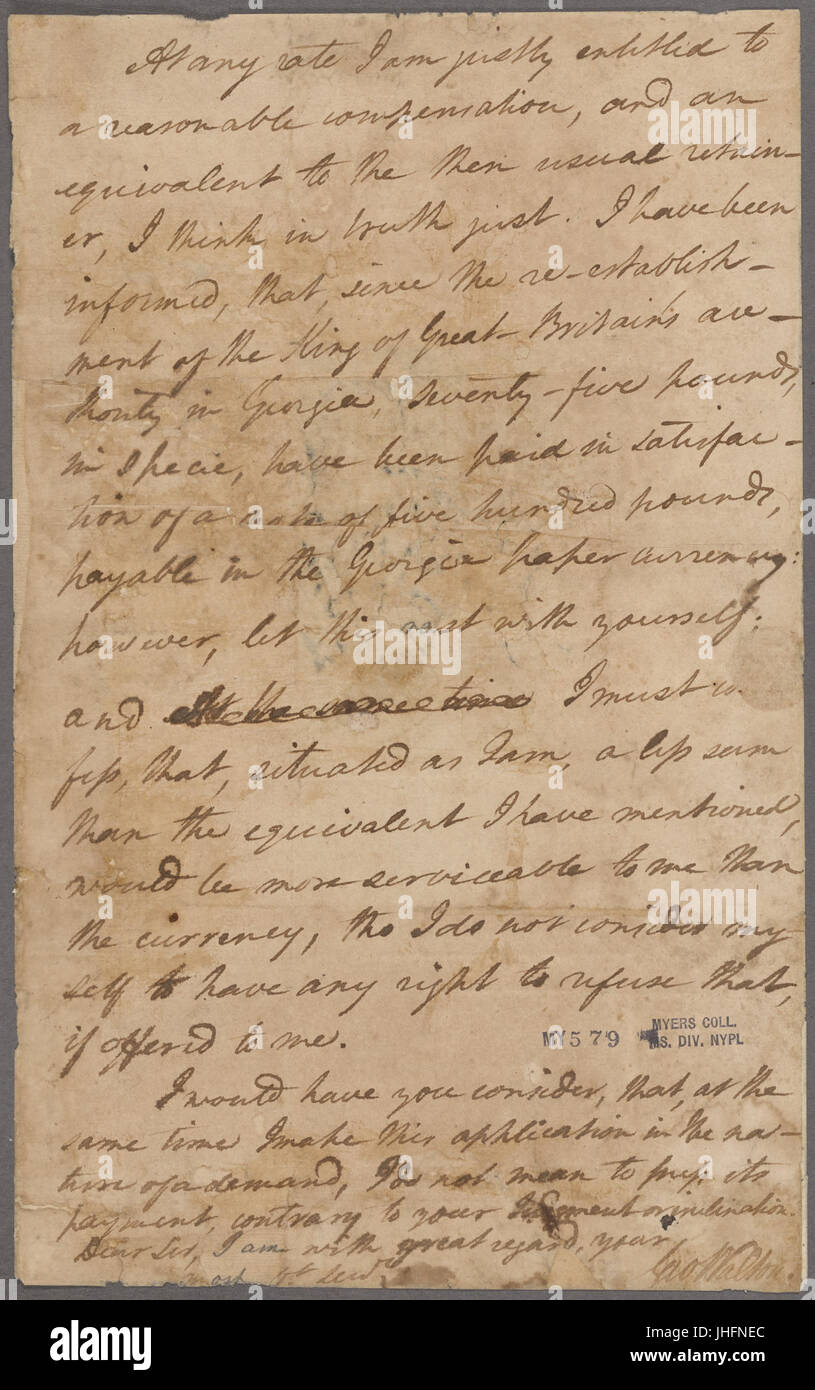 At any rate I am justly entitled to
a reasonable compensation, and an
equivalent to the then usual retain-
er, I think in truth just. I have been
informed, that, since the re-establish-
ment of the King of Great-Britain's au-
thority in Georgia, seventy-five pounds,
in specie, have been paid in satisfac-
tion of a note of five hundred pounds,
payable in the Georgia paper currency:
however, let this rest with yourself:
and at the same time I must co
fess, that, situated as I am, a less sum
than the equivalent I have mentioned,
would be more serviceable to me than
the currency, tho I do not consider my
self to have any right to refuse that,
if offered to me.
MY579
MYERS COLL.
MS. DIV. NYPL
I would have you consider, that, at the
same time I make this application in the na-
ture of a demand, I do not mean to its
payment, contrary to your judgment or inclination.
Dear Sir, I am with great regard, your
Geo Walton.
alamy stock photo
a
alamy
Image ID: JHFNEC
www.alamy.com